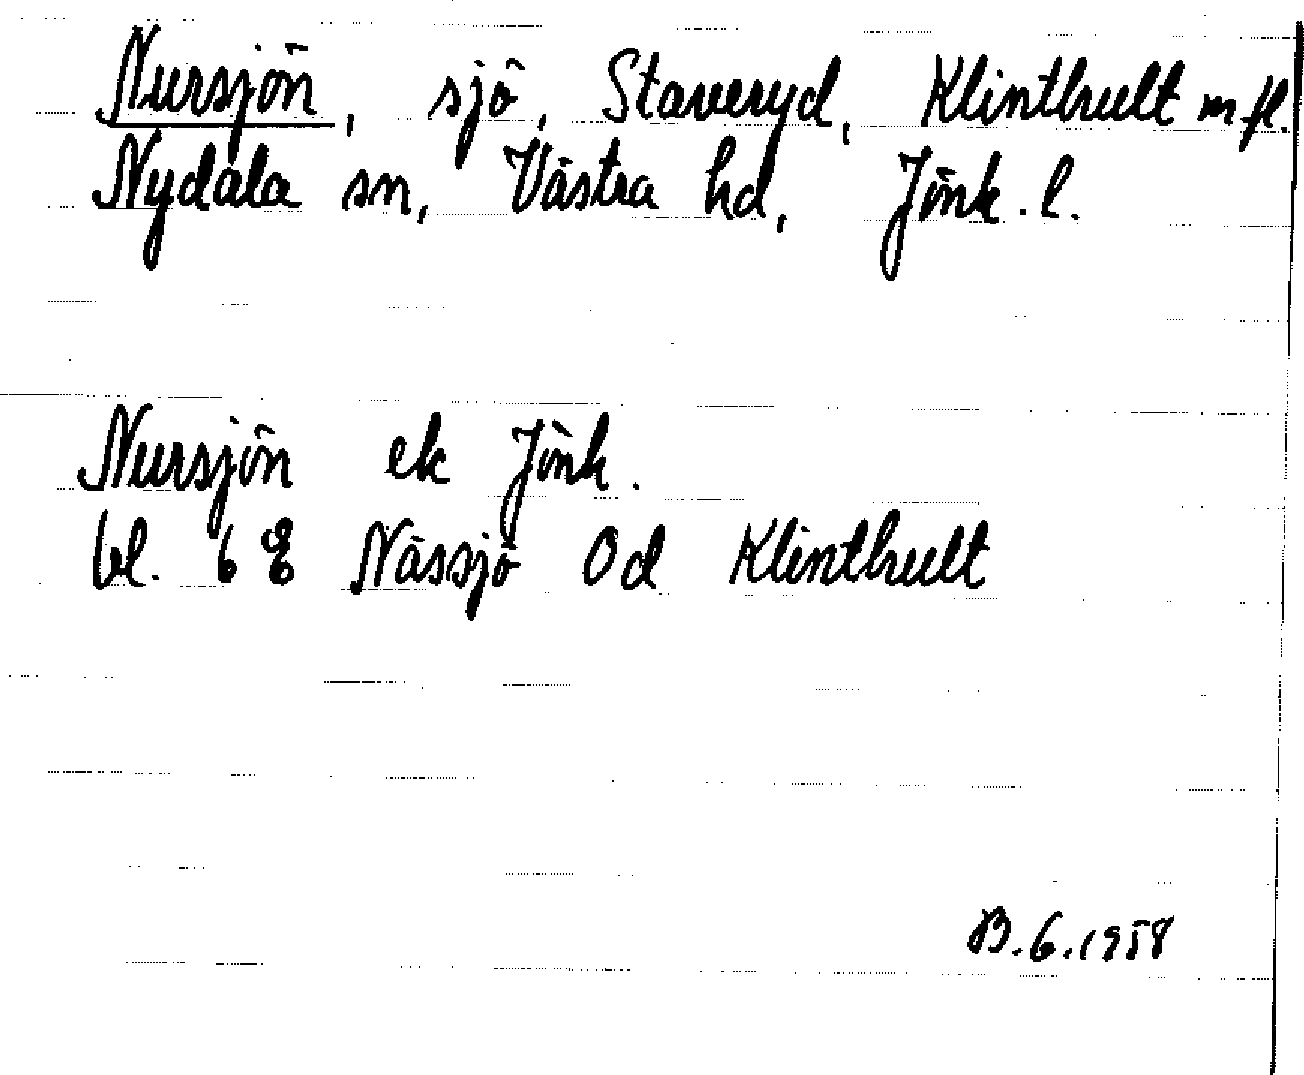 Nursjön, sjö, Staveryd, Klinthult m.fl.
Nydala sn, Västra hd, Jönk. l.
Nursjön ek Jönk.
bl. 6 E Nässjö Od Klinthult
B.6.1958